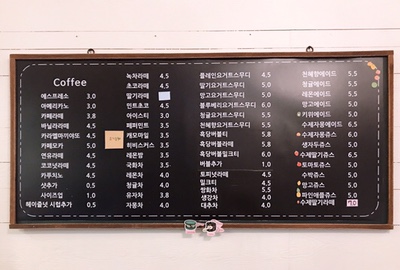 Coffee
에스프레소 3,0
아메리카노 3,0
카페라떼 3,8
바닐라라떼 4,5
카라멜마끼아또 4,5
카페모카 5,0
연유라떼 4,5
코코넛라떼 4,5
카푸치노 4,5
샷추가 0,5
사이즈업 1,0
헤이즐넛 시럽추가 0,5
녹차라떼 4,5
초코라떼 4,5
딸기라떼
민트초코 4,5
아이스티 3,0
페퍼민트 3,5
캐모마일 3,5
히비스커스 3,5
레몬밤 3,5
국화차 3,5
레몬차 4,0
청귤차 4,0
유자차 3,8
자몽차 4,0
플레인요거트스무디 4,5
딸기요거트스무디 5,5
망고요거트스무디 6,0
블루베리요거트스무디 6,0
청귤요거트스무디 5,5
천혜향요거트스무디 5,5
흑당버블티 5,8
흑당버블라떼 5,8
흑당버블밀크티 6,0
버블추가 1,0
토피넛라떼 4,5
밀크티 4,5
쌍화차 5,5
생강차 4,0
대추차 4,0
천혜향에이드 5,5
청귤에이드 5,5
레몬에이드 5,5
망고에이드 5,5
키위에이드 5,5
수제자몽에이드 6,5
수제자몽쥬스 6,0
생자두쥬스 5,0
수제딸기쥬스 6,5
토마토쥬스 5,0
수박쥬스 5,0
망고쥬스 5,0
파인애플쥬스 5,0
수제딸기라떼